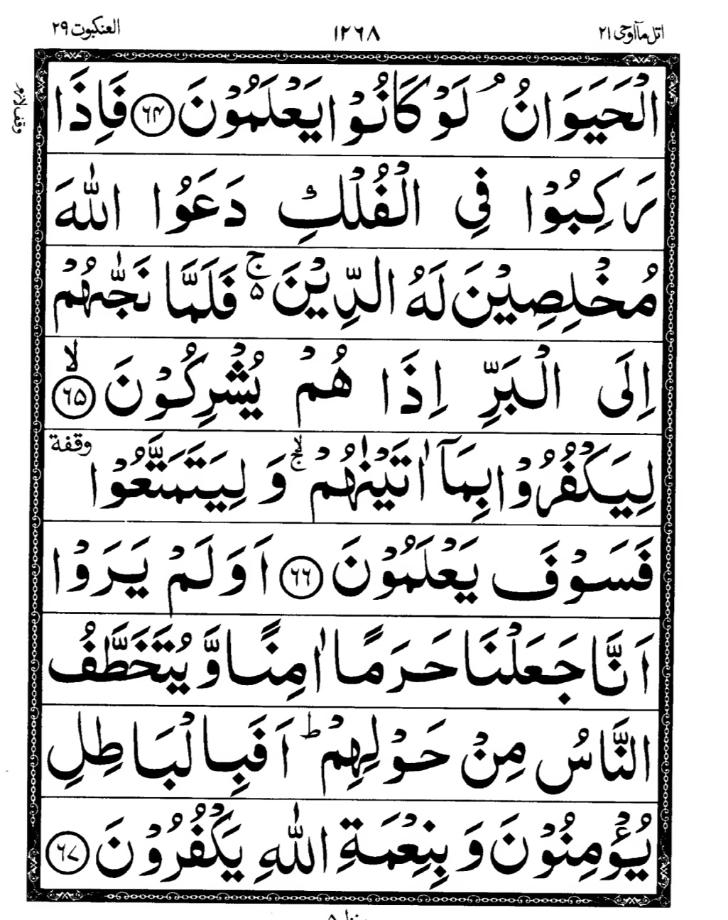 اتل مآ اوحی ٢١ ١٢٦٨ العنکبوت ٢٩
الْحَيَوَانُ ۘ لَوْ كَانُوْا يَعْلَمُوْنَ ﴿۶۴﴾ فَاِذَا
وقف لازم
رَكِبُوْا فِي الْفُلْكِ دَعَوُا اللّٰهَ
مُخْلِصِيْنَ لَهُ الدِّيْنَ ۵ۚ فَلَمَّا نَجّٰىهُمْ
اِلَى الْبَرِّ اِذَا هُمْ يُشْرِكُوْنَ ﴿۶۵﴾ۙ
لِيَكْفُرُوْا بِمَآ اٰتَيْنٰهُمْ ۙۚ وَ لِيَتَمَتَّعُوْا وقفة
فَسَوْفَ يَعْلَمُوْنَ ﴿۶۶﴾ اَوَلَمْ يَرَوْا
اَنَّا جَعَلْنَا حَرَمًا اٰمِنًا وَّ يُتَخَطَّفُ
النَّاسُ مِنْ حَوْلِهِمْ ؕ اَفَبِالْبَاطِلِ
يُؤْمِنُوْنَ وَ بِنِعْمَةِ اللّٰهِ يَكْفُرُوْنَ ﴿۶۷﴾